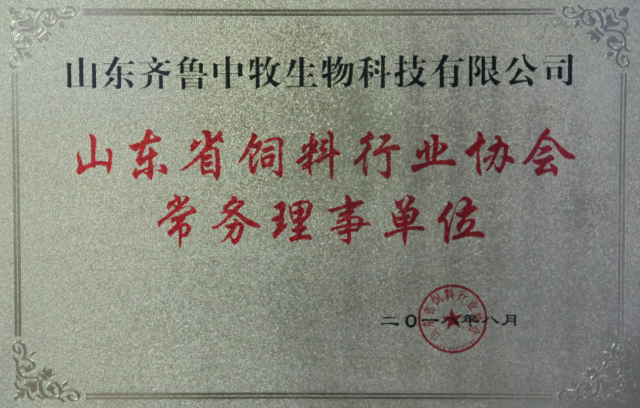 山东齐鲁中牧生物科技有限公司
山东省饲料行业协会
常务理事单位
二0一六年八月
山东省饲料行业协会